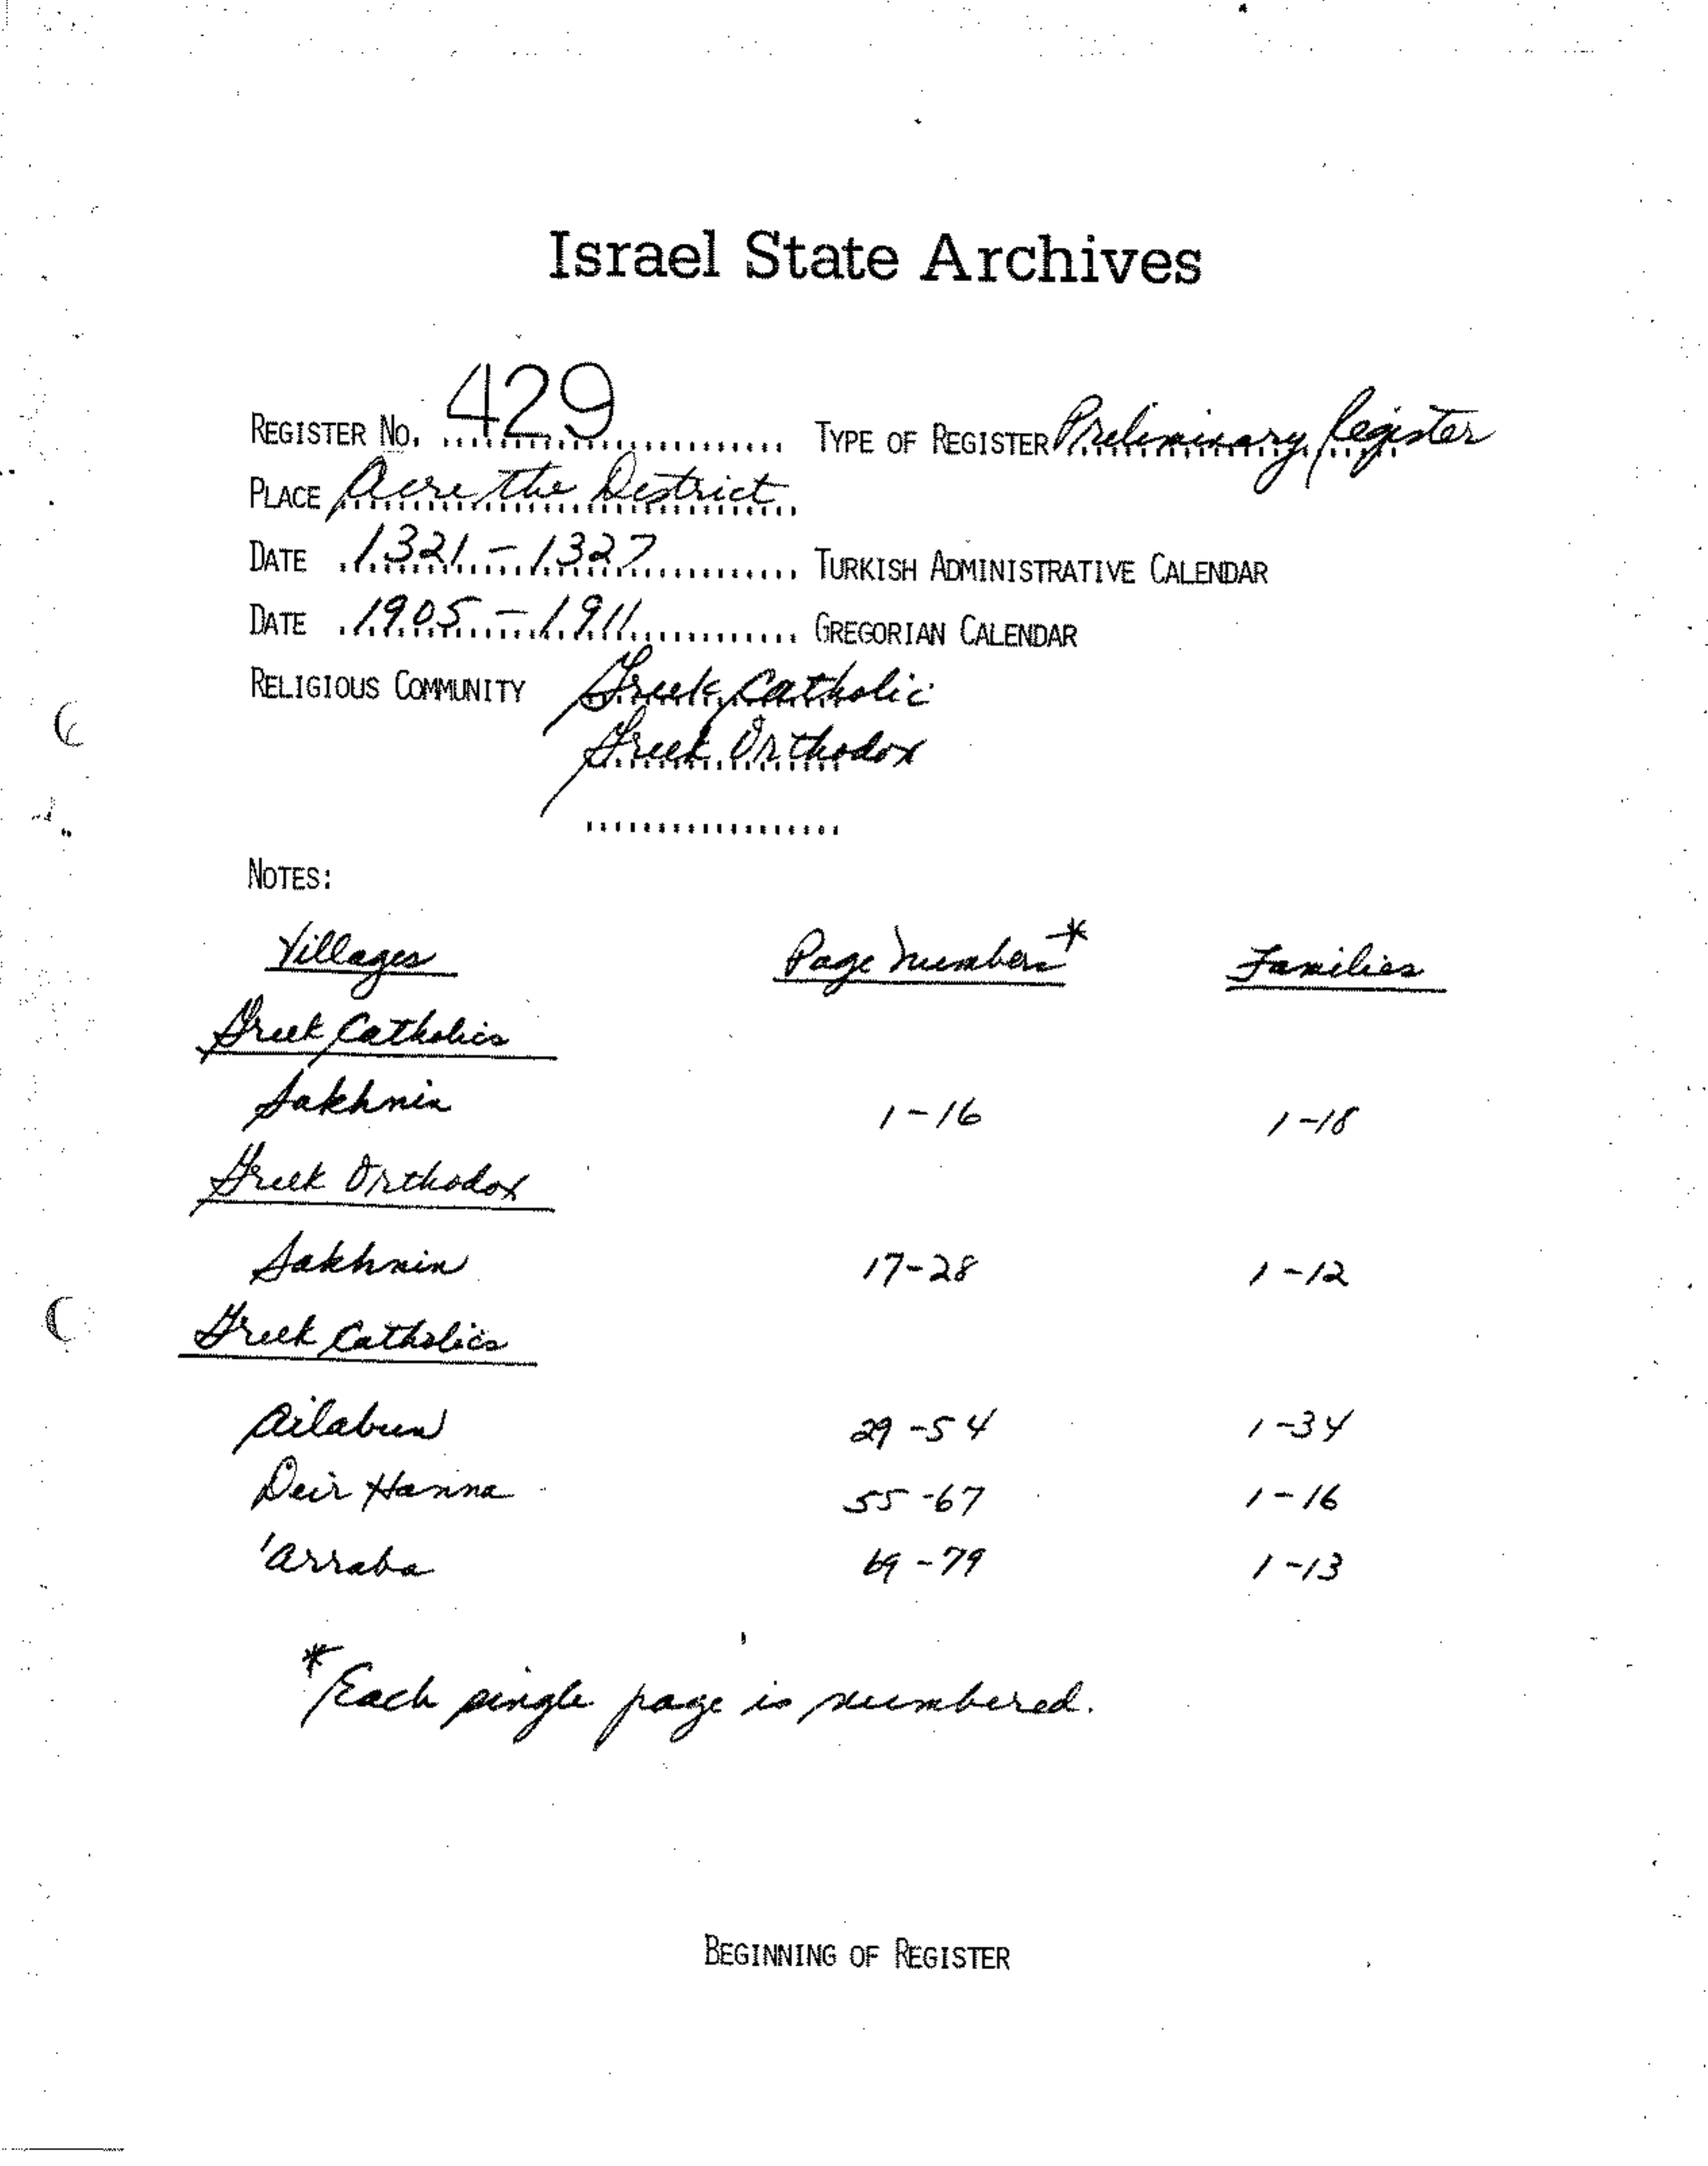 Israel State Archives
REGISTER NO. 429 TYPE OF REGISTER Preliminary Register
PLACE Acre the District
DATE 1321-1327 TURKISH ADMINISTRATIVE CALENDAR
DATE 1905-1911 GREGORIAN CALENDAR
RELIGIOUS COMMUNITY Greek Catholic
Greek Orthodox
NOTES:
Villages Page Numbers* Families
Greek Catholics
Sakhnin 1-16 1-18
Greek Orthodox
Sakhnin 17-28 1-12
Greek Catholics
Ailabun 29-54 1-34
Deir Hanna 55-67 1-16
'Arraba 69-79 1-13
*Each single page is numbered.
BEGINNING OF REGISTER